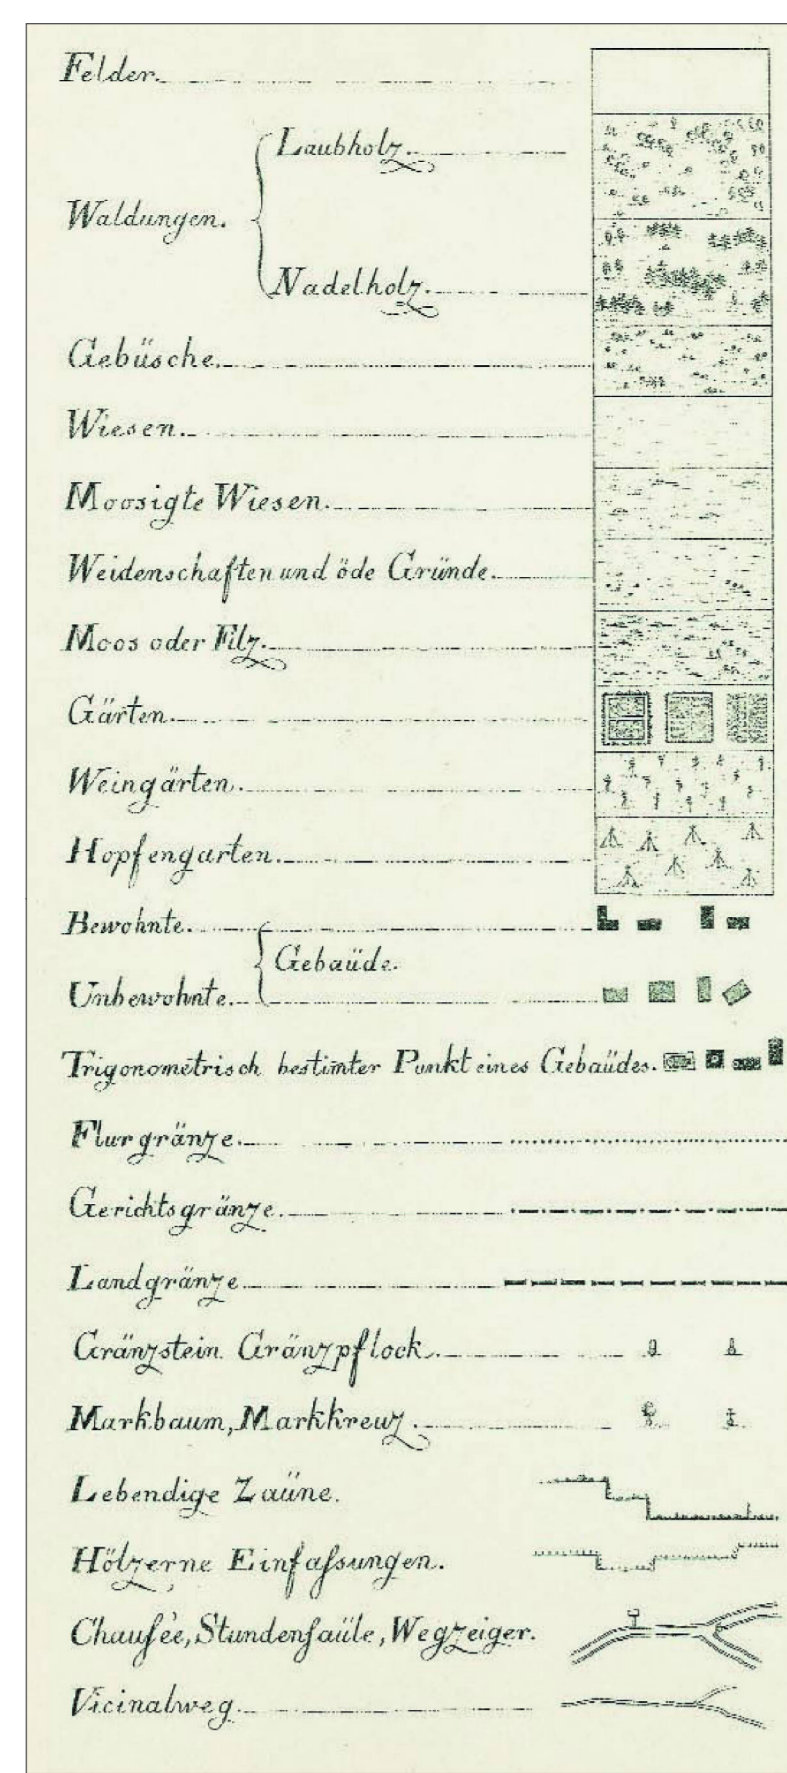 Felder.
Laubholz.
Waldungen.
Nadelholz.
Gebüsche.
Wiesen.
Moosigte Wiesen.
Weidenschaften und öde Gründe.
Moos oder Filz.
Gärten.
Weingärten.
Hopfengarten.
Bewohnte.
Gebaüde.
Unbewohnte.
Trigonometrisch bestim̄ter Punkt eines Gebaüdes.
Flurgränze.
Gerichtsgränze.
Landgränze
Gränzstein. Gränzpflock.
Markbaum, Markkreuz.
Lebendige Zaüne.
Hölzerne Einfaſsungen.
Chauſsée, Stundenſaüle, Wegzeiger.
Vicinalweg.